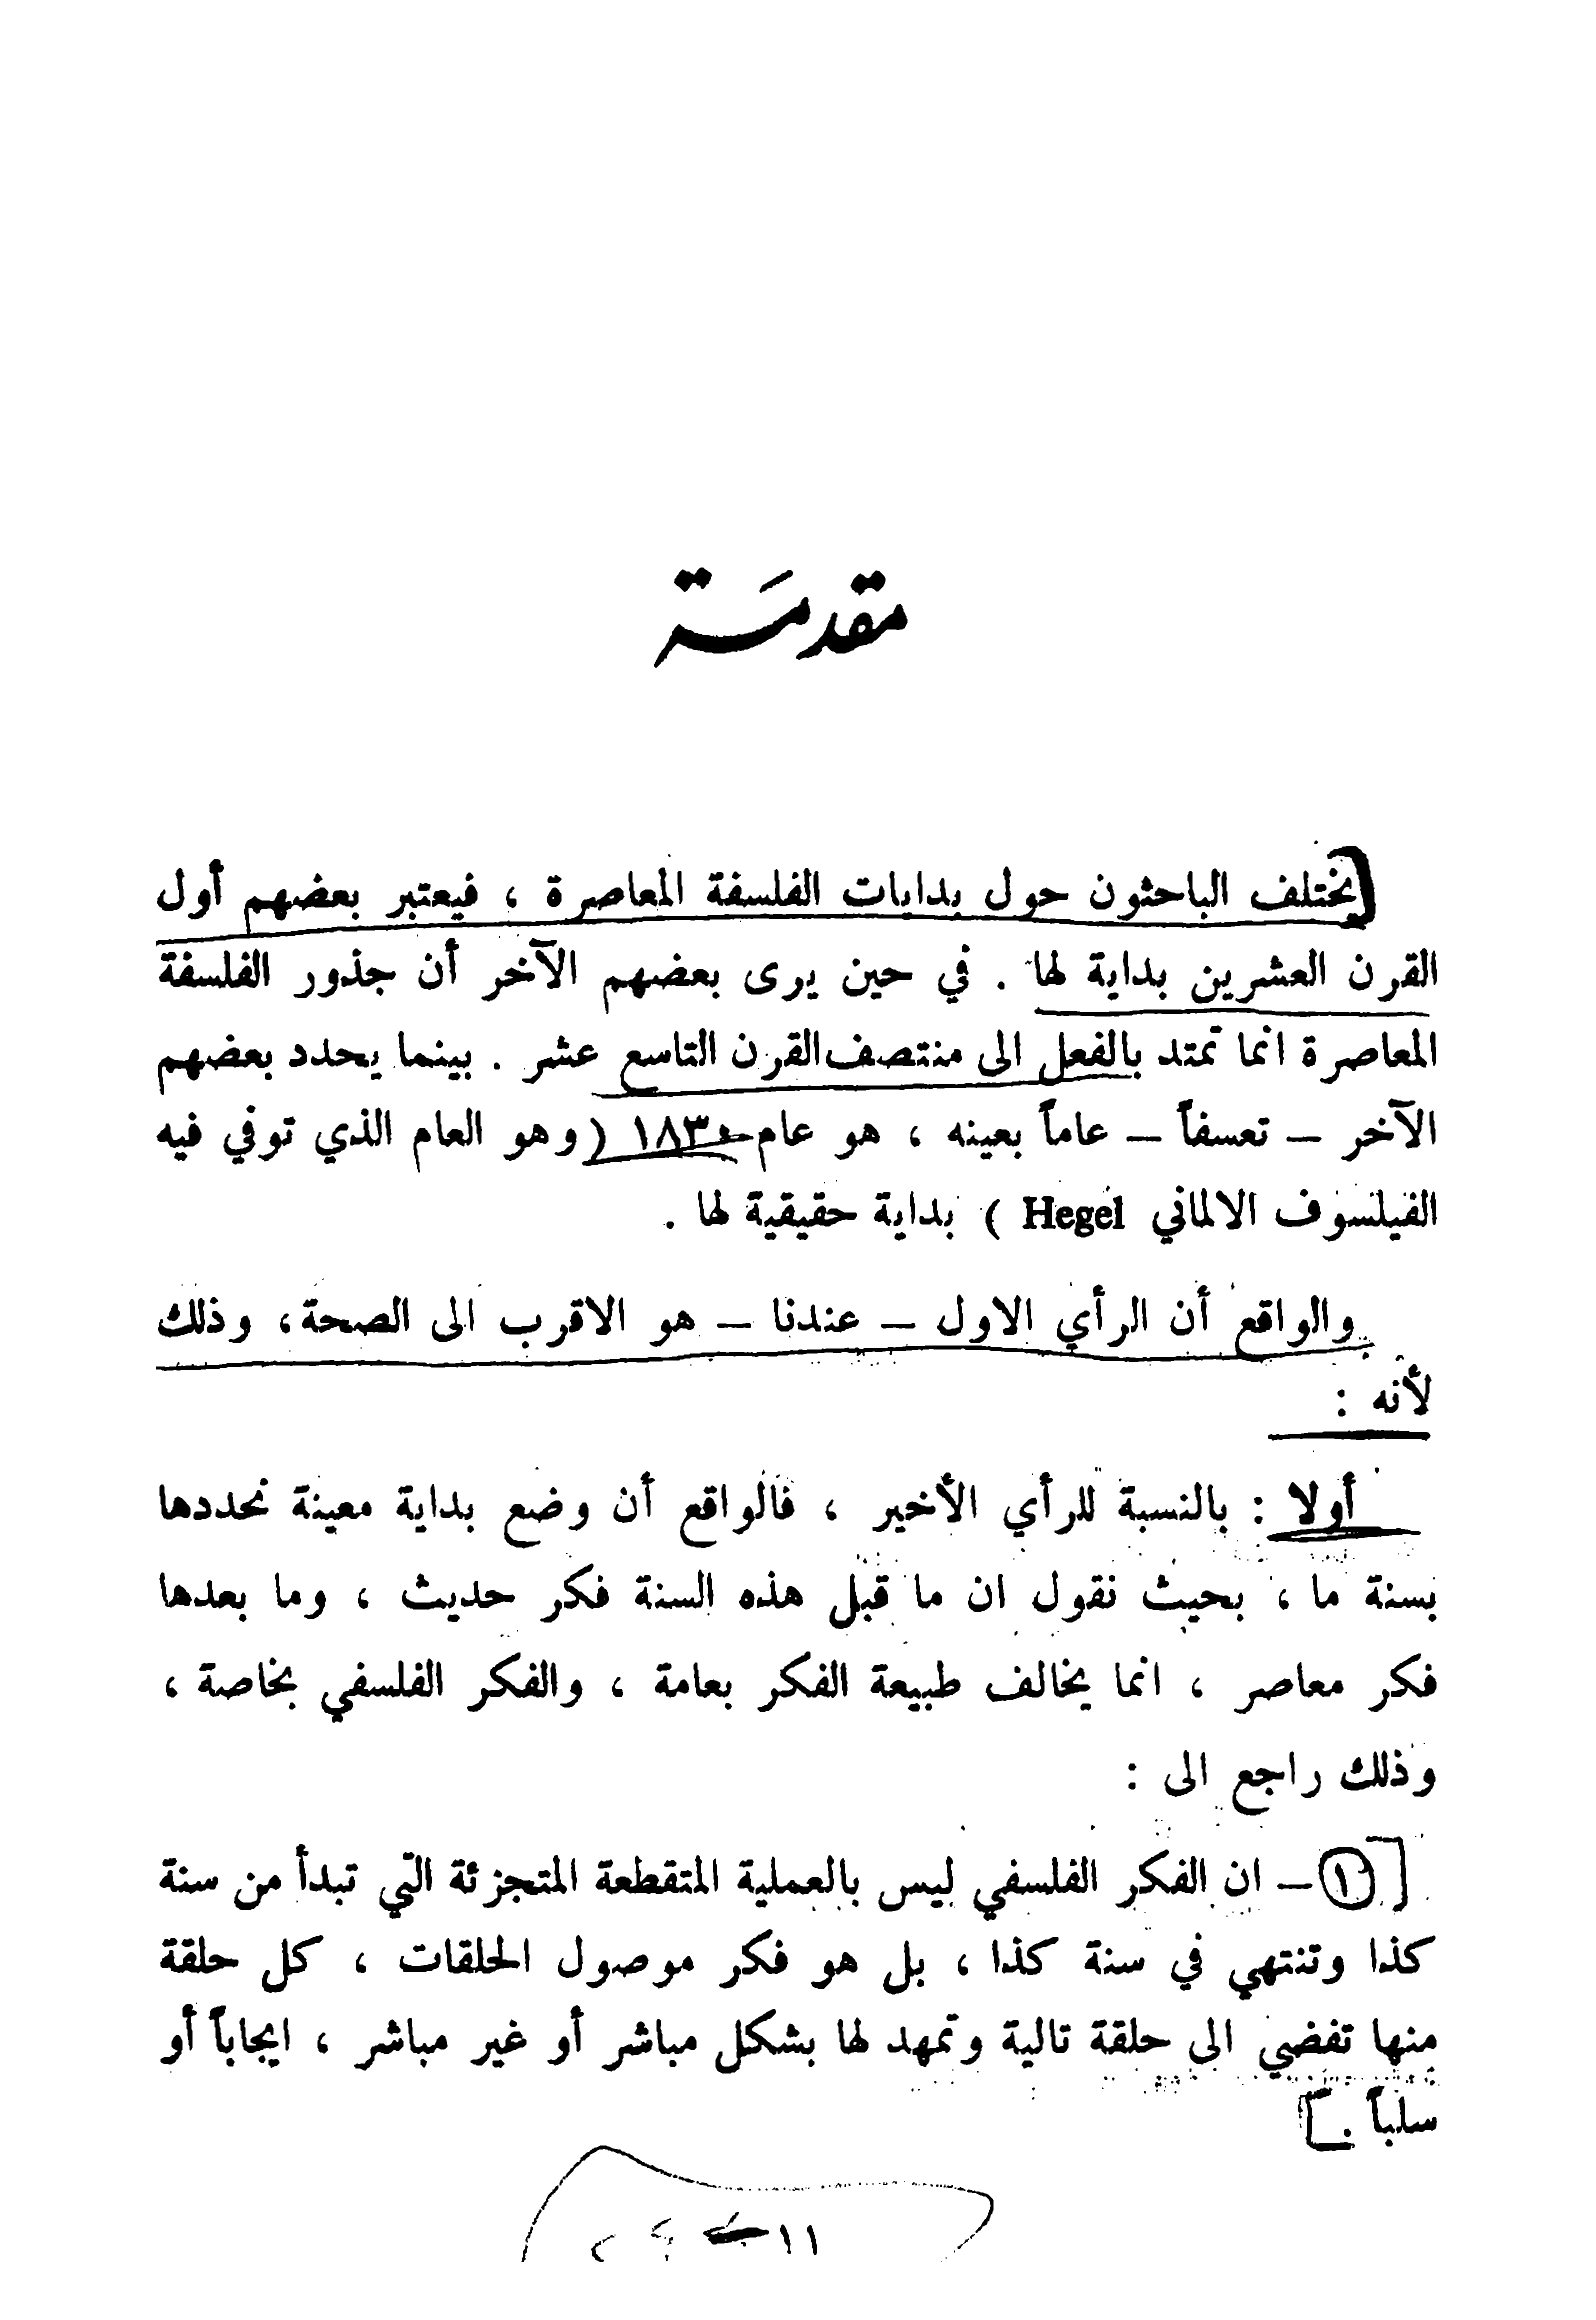 مقدمة
يختلف الباحثون حول بدايات الفلسفة المعاصرة ، فيعتبر بعضهم أول
القرن العشرين بداية لها . في حين يرى بعضهم الآخر أن جذور الفلسفة
المعاصرة انما تمتد بالفعل الى منتصف القرن التاسع عشر . بينما يحدد بعضهم
الآخر – تعسفاً – عاماً بعينه ، هو عام ١٨٣٠ ( وهو العام الذي توفي فيه
الفيلسوف الالماني Hegel ) بداية حقيقية لها .
والواقع أن الرأي الاول – عندنا – هو الاقرب الى الصحة ، وذلك
لأنه :
أولا : بالنسبة للرأي الأخير ، فالواقع أن وضع بداية معينة نحددها
بسنة ما ، بحيث نقول ان ما قبل هذه السنة فكر حديث ، وما بعدها
فكر معاصر ، انما يخالف طبيعة الفكر بعامة ، والفكر الفلسفي بخاصة ،
وذلك راجع الى :
١ – ان الفكر الفلسفي ليس بالعملية المتقطعة المتجزئة التي تبدأ من سنة
كذا وتنتهي في سنة كذا ، بل هو فكر موصول الحلقات ، كل حلقة
منها تفضي الى حلقة تالية وتمهد لها بشكل مباشر أو غير مباشر ، ايجاباً أو
سلباً .
١١